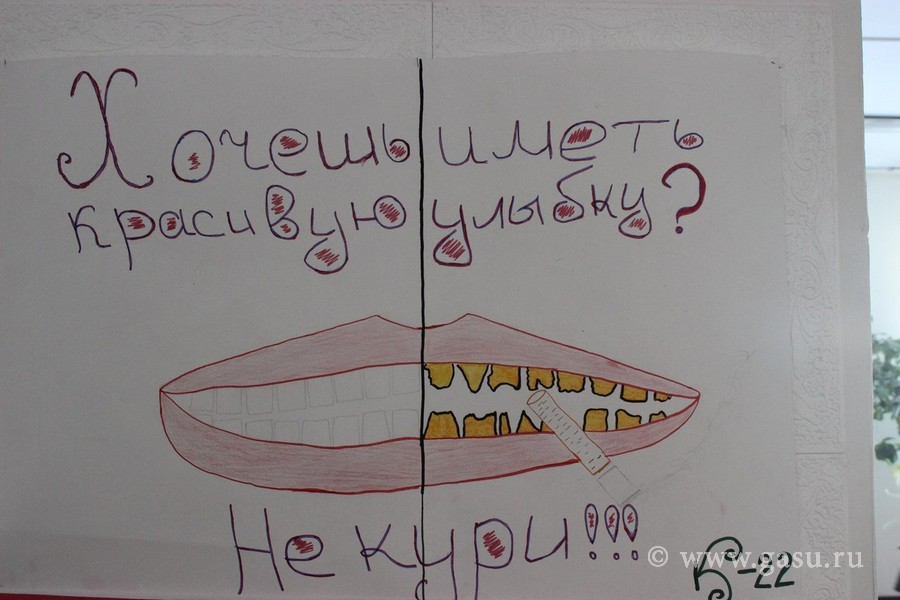 Хочешь иметь
красивую улыбку?
Не кури!!!
Б-22
© www.gasu.ru